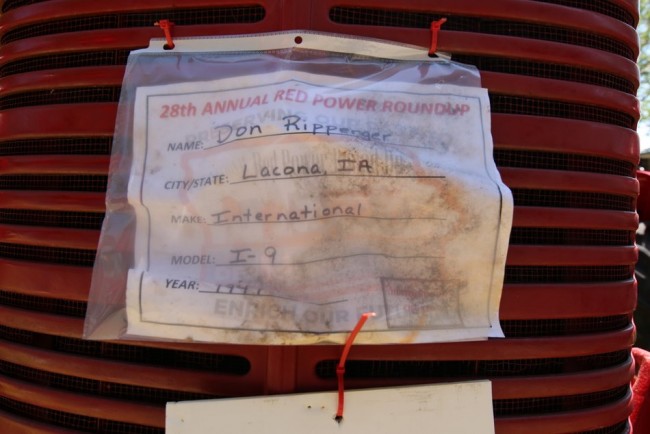 28th ANNUAL RED POWER ROUNDUP
PRESERVING OUR
NAME: Don Rippenger
CITY/STATE: Lacona, IA
MAKE: International
MODEL: I-9
YEAR: 1941
ENRICH OUR FUTURE